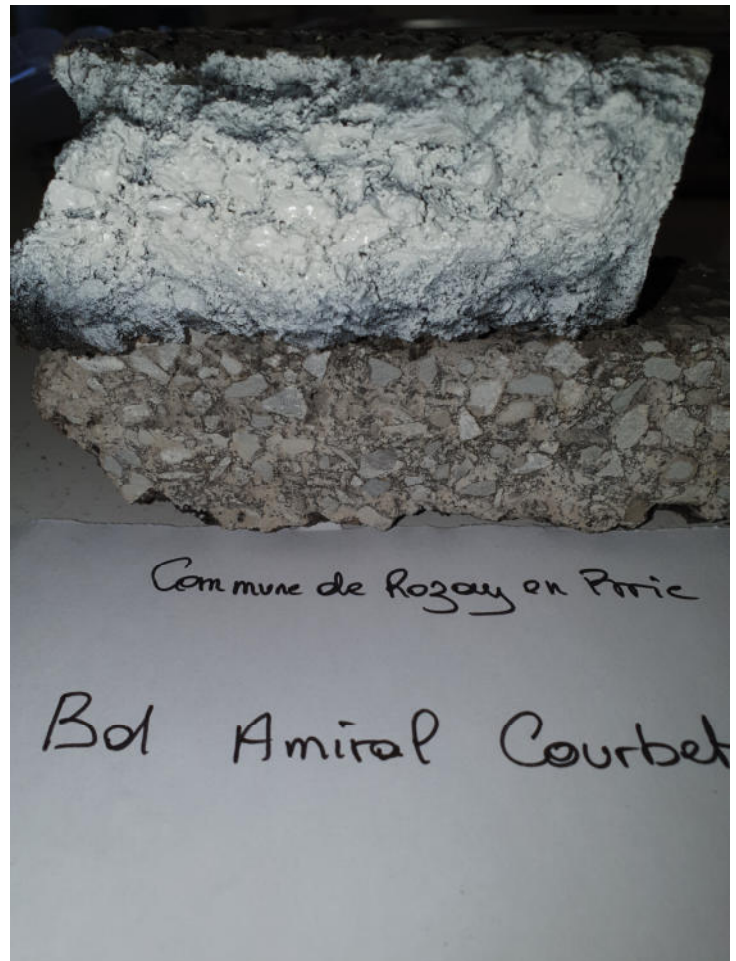 Commune de Rozay en Brie
Bd Amiral Courbet